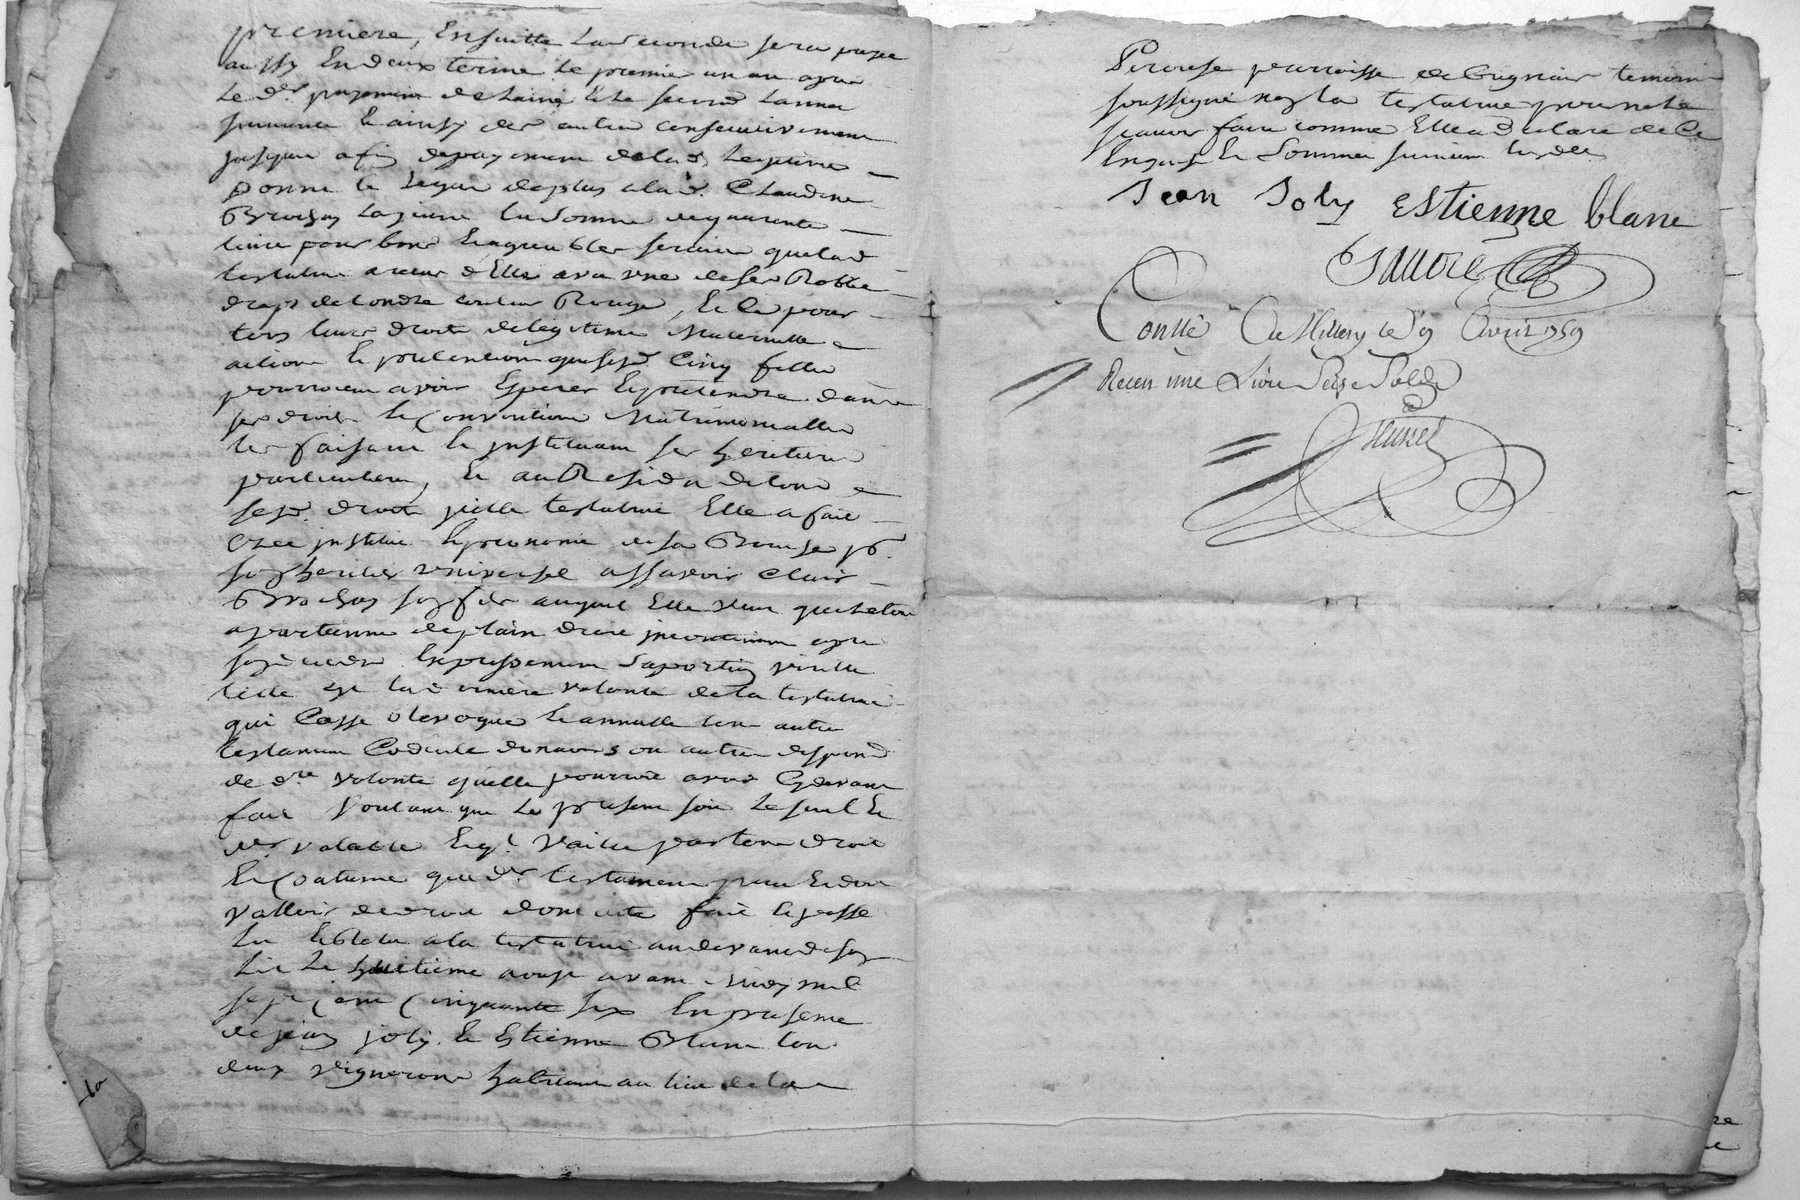 premiere, Ensuitte La Seconde sera payée
aussy En deux terme le premier un an apres
Le der payement de Lainé Et Le second Lannee
suivante Et ainsy des autre consecutivement
jusques a fin depayement delad. Legitime
Donne Et Legue deplus alad. Claudine
Brochay Lajeune La Somme dequarante
livre pour bons Et agreables service quelad
testatrice a receus d'Elle avec une deses Robbe
drap de Londre couleur Rouge, Et Ce pour
tous leurs droits delegitime Maternelle
action Et pretention que sesd. Cinq fille
pourroient avoir Esperer Et pretendre dans
ses droits Et Convention Matrimonialle
les faisant Et instituant ses heritiere
particuliere, Et au Residu detous
sesd. droits jcelle testatrice Elle a fait
Créé institue Et prenommé desa Bouche pr.
son heritier universel assavoir Clair
Brochay son fils auquel Elle veut que letout
apartienne deplain droit jncontinent apres
son deces Expressement Saportion virille
telle est la derniere volonté de la testatrice
qui Casse Revoque Et annulle tous autre
testament Codicile donnations ou autre dispond
de dre volonté quelle pourroit avoir Cydevant
fait Voulant que Le present soit Le seul Et
der valable Et qt. vaille partous droit
Et Coutume que der testament peut Et doit
Valloir dedroit dont acte fait Et passé
Lu Et Relu ala testatrice audevant deson
Lit Le huitieme aoust avant midy mil
sept Cent Cinquante six En presence
de jean joly Et Estienne Blanc tous
deux vignerons habitans au lieu dela
Perouse parroisse de Grigniers temoins
soussigné non la testatrice pour ne le
scavoir faire comme Elle a déclaré de Ce
Enquise Et Sommée suivant Lesdts
Jean Joly Estienne blanc
Conllé A Millery le 9 Avril 1759
Receu une Livre Seize Solds